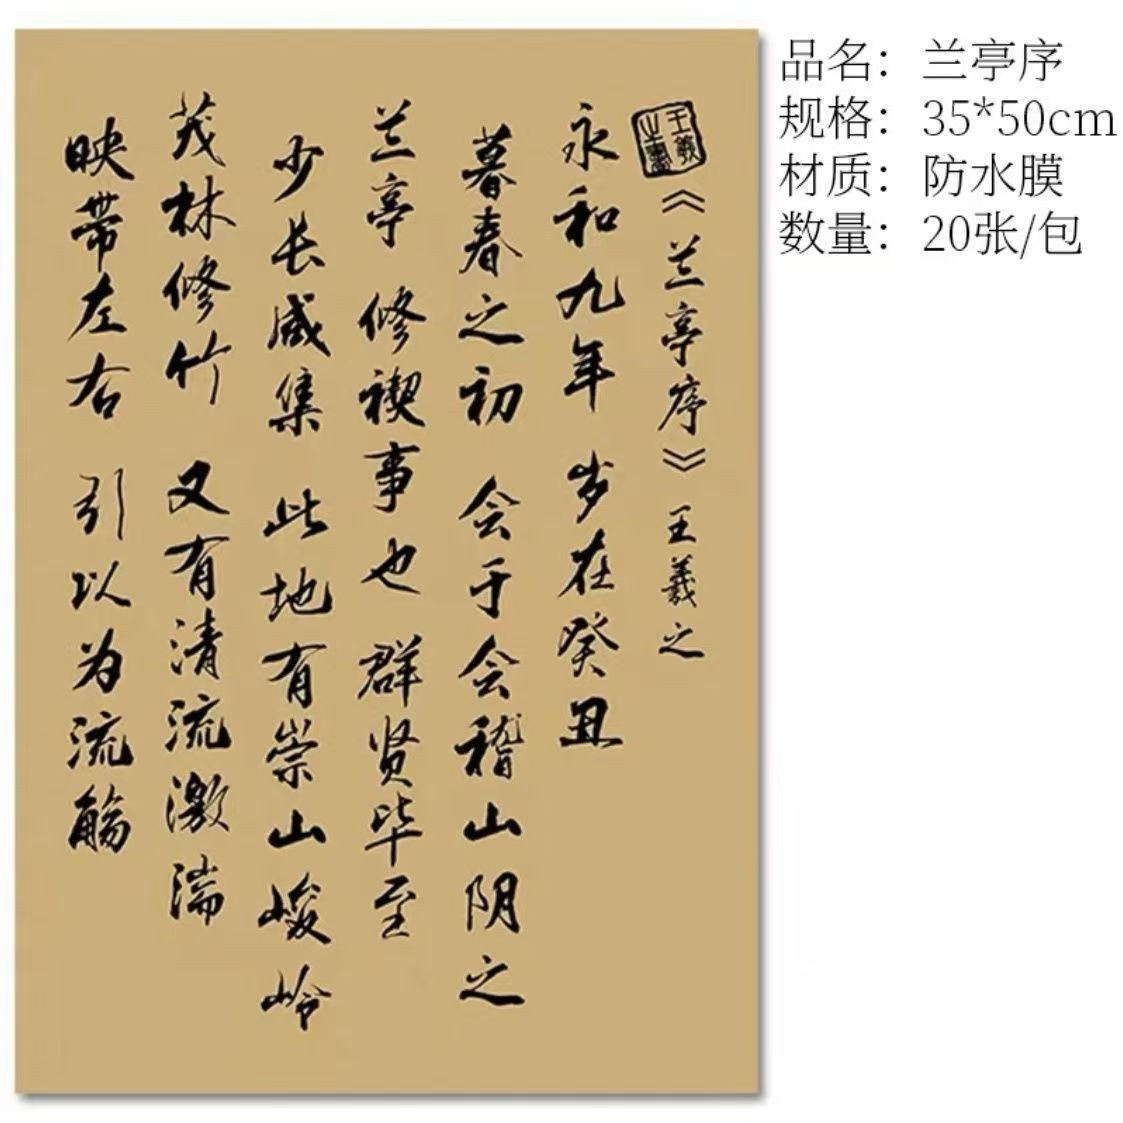 《兰亭序》王羲之
永和九年 岁在癸丑
暮春之初 会于会稽山阴之
兰亭 修禊事也 群贤毕至
少长咸集 此地有崇山峻岭
茂林修竹 又有清流激湍
映带左右 引以为流觞
王羲之书
品名：兰亭序
规格：35*50cm
材质：防水膜
数量：20张/包